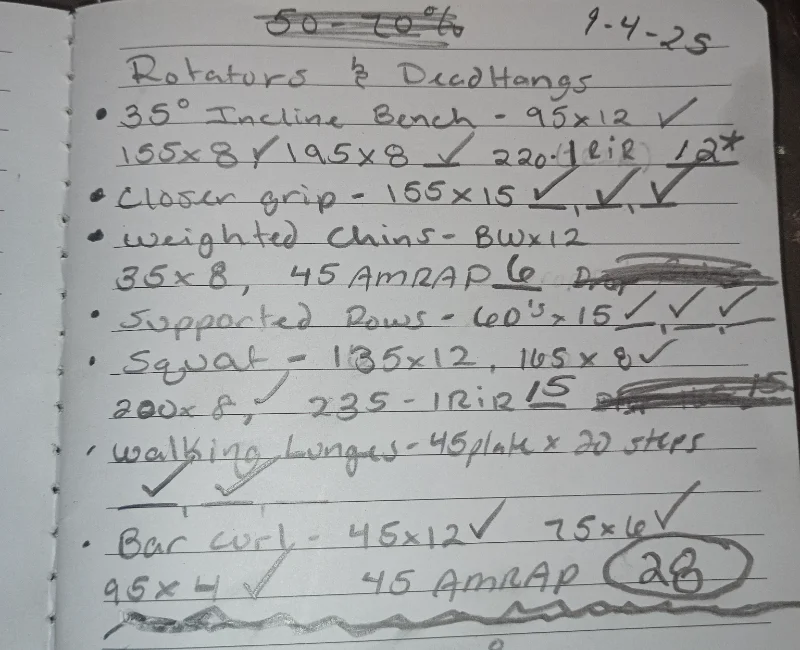 50-70%
9-4-25
Rotators & DeadHangs
• 35° Incline Bench - 95x12 ✓
155x8 ✓ 195x8 ✓ 220-1RiR 12*
• Closer grip - 155x15 ✓, ✓, ✓
• Weighted Chins - BWx12
35x8, 45 AMRAP 6
• Supported Rows - 60's x15 ✓, ✓, ✓
• Squat - 135x12, 165x8 ✓
200x8, ✓ 235-1RiR 15
• Walking Lunges - 45plate x 20 steps
✓, ✓
• Bar curl - 45x12 ✓ 75x6 ✓
95x4 ✓ 45 AMRAP 28